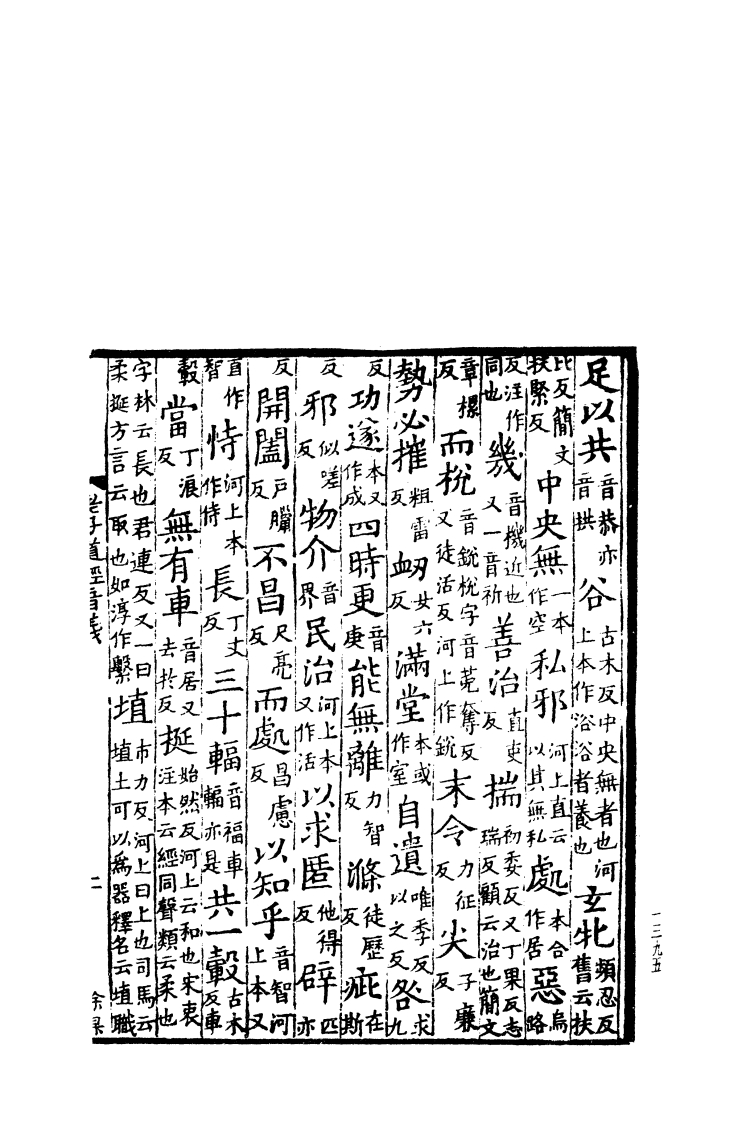 足以共音恭亦音拱谷古木反中央無者也河上本作浴浴者養也玄牝頻忍反舊云扶
比反簡文扶緊反中央無一本作空私邪河上直云以其無私處本合作居惡烏路
反注作同也幾音機近也又一音祈善治直吏反揣初委反又丁果反志瑞反顧云治也簡文
章樏反而梲音銳梲字音菟奪反又徒活反河上作銳末令力征反尖子廉反
勢必摧粗雷反衂女六反滿堂本或作室自遺唯季反以之反咎求九
反功遂本又作成四時更音庚能無離力智反滌徒歷反疵在斯
反邪似嗟反物介音界民治河上本又作活以求匿他得反辟匹亦
反開闔戶臘反不昌尺亮反而處昌慮反以知乎音智河上本又
直作智恃河上本作侍長丁丈反三十輻音福車輻亦是共一轂古木反車
轂當丁浪反無有車音居又去於反挻始然反河上云和也宋衷注本云經同聲類云柔也
字林云長也君連反又一曰柔挻方言云取也如淳作繫埴市力反河上曰上也司馬云埴土可以為器釋名云埴職
老子道經音義
二
一三九五